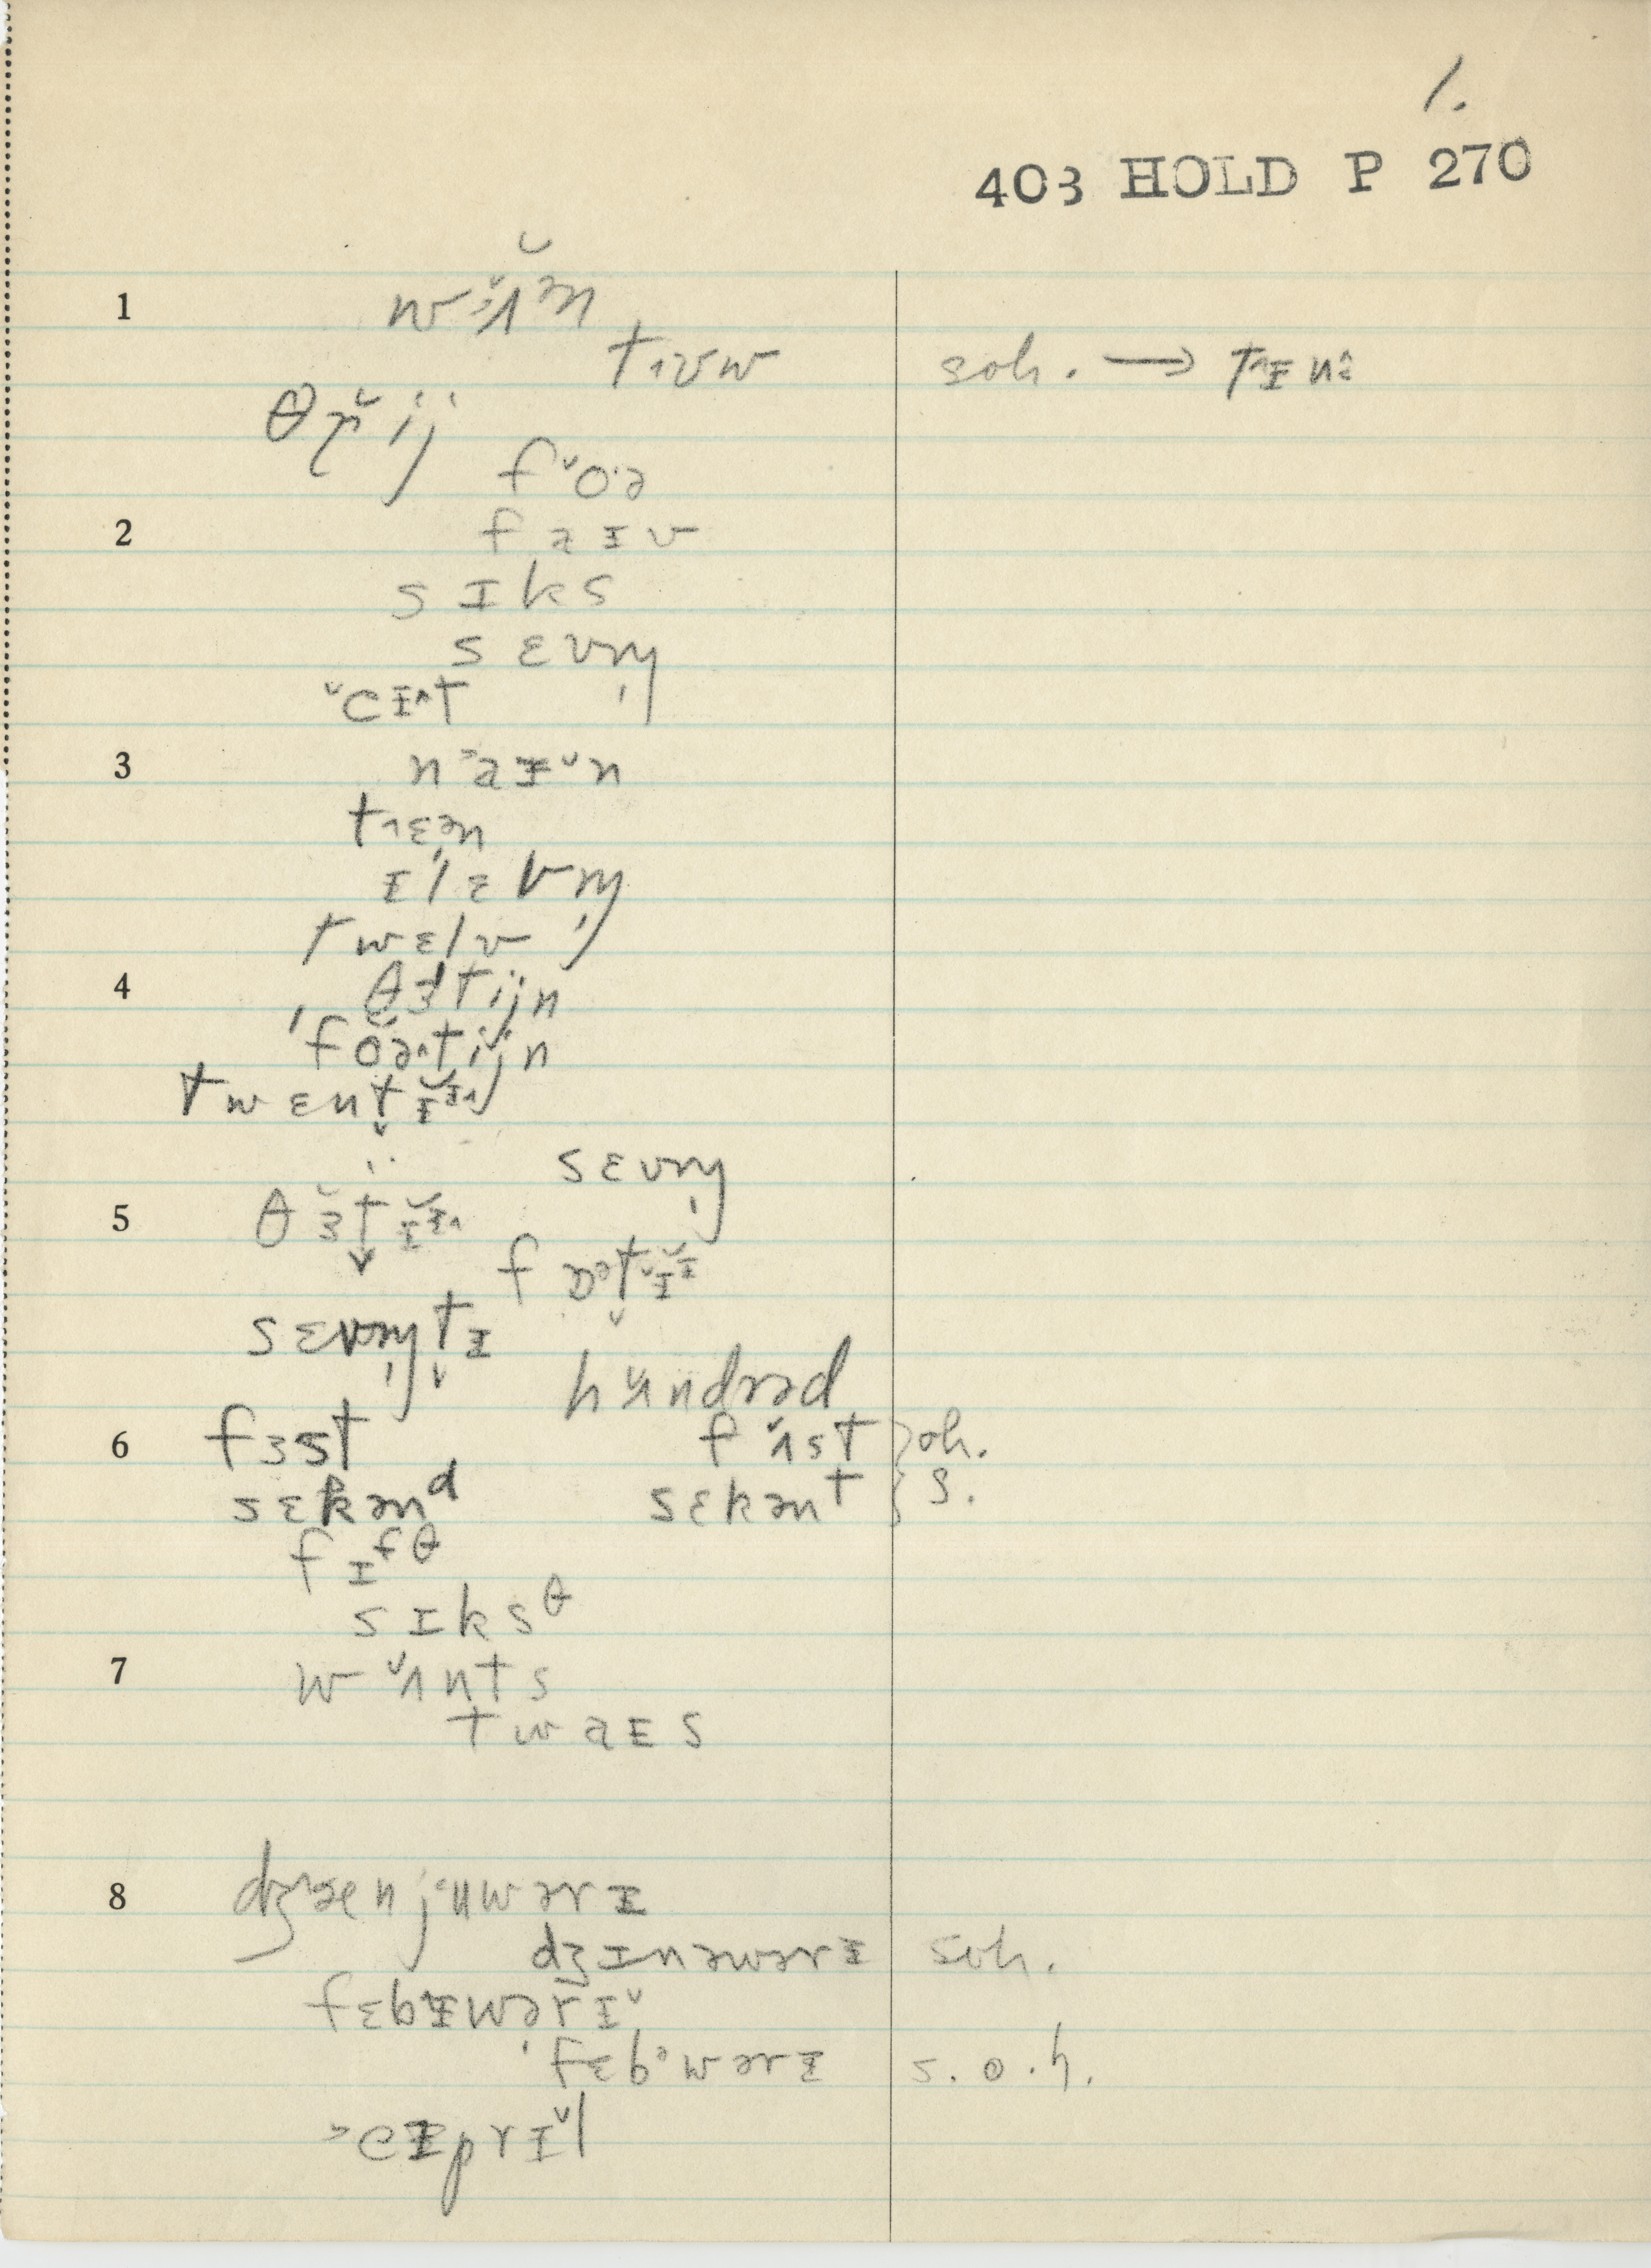 1.
403 HOLD P 270
1 wʌ̆ən
tʊw soh. → tɪn
θrij
f˅oə
2 faɪv
sɪks
sɛvn̩
˅eɪ^t
3 n˃aɪ˅n
tɛən
ɪlɛvn̩
twɛlv
4 θɜtijn
'foətijn
twɛnt̬ɪɪ
sɛvn̩
5 θɜt̬ɪɪ
fɒət̬ɪɪ
sɛvn̩t̬ɪ
hʌndrəd
6 fɜst f˅ʌst } oh.
sɛkənᵈ sɛkənᵗ } s.
fɪᶠᶿ
sɪksᶿ
7 w˅ʌnts
twaɪs
8 dʒænjuwərɪ
dʒɪnəwərɪ soh.
fɛbɪwərɪ˅
'fɛbəwərɪ s.o.h.
˃eɪprɪ˅l